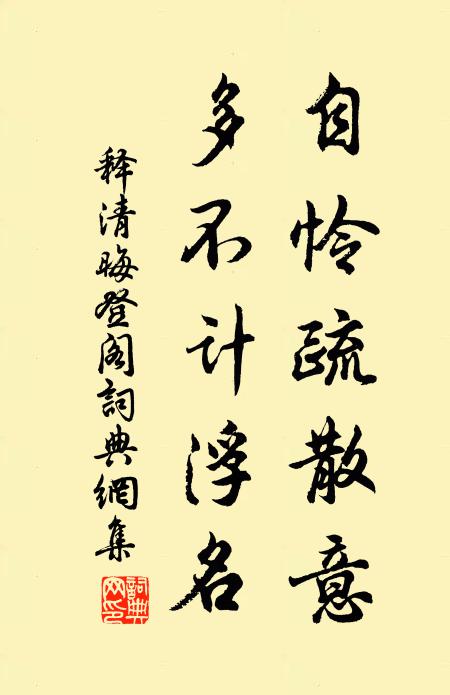 自怜疏散意
多不计浮名
释清晦登阁詞典網集
詞典网印